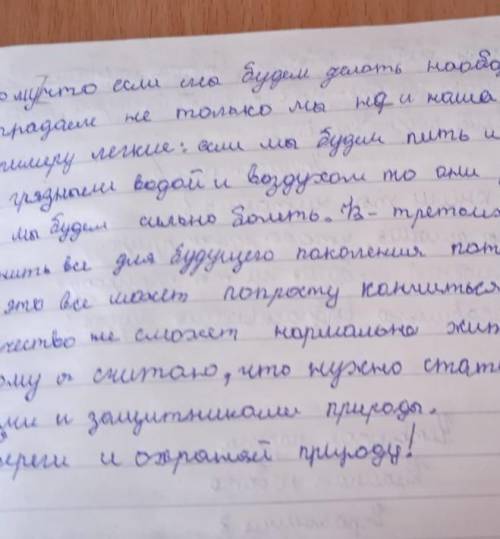 ому что если мы будем делать наобо
традаем не только мы но и наша
примеру легкие: если мы будем пить и
грязным водой и воздухом то они
мы будем сильно болеть. В-третьих
нить все для будущего поколения пот
это все может попросту кончиться
чество не сможет нормально жит
ому я считаю, что нужно стат
ми и защитниками природы.
ереги и охраняй природу!